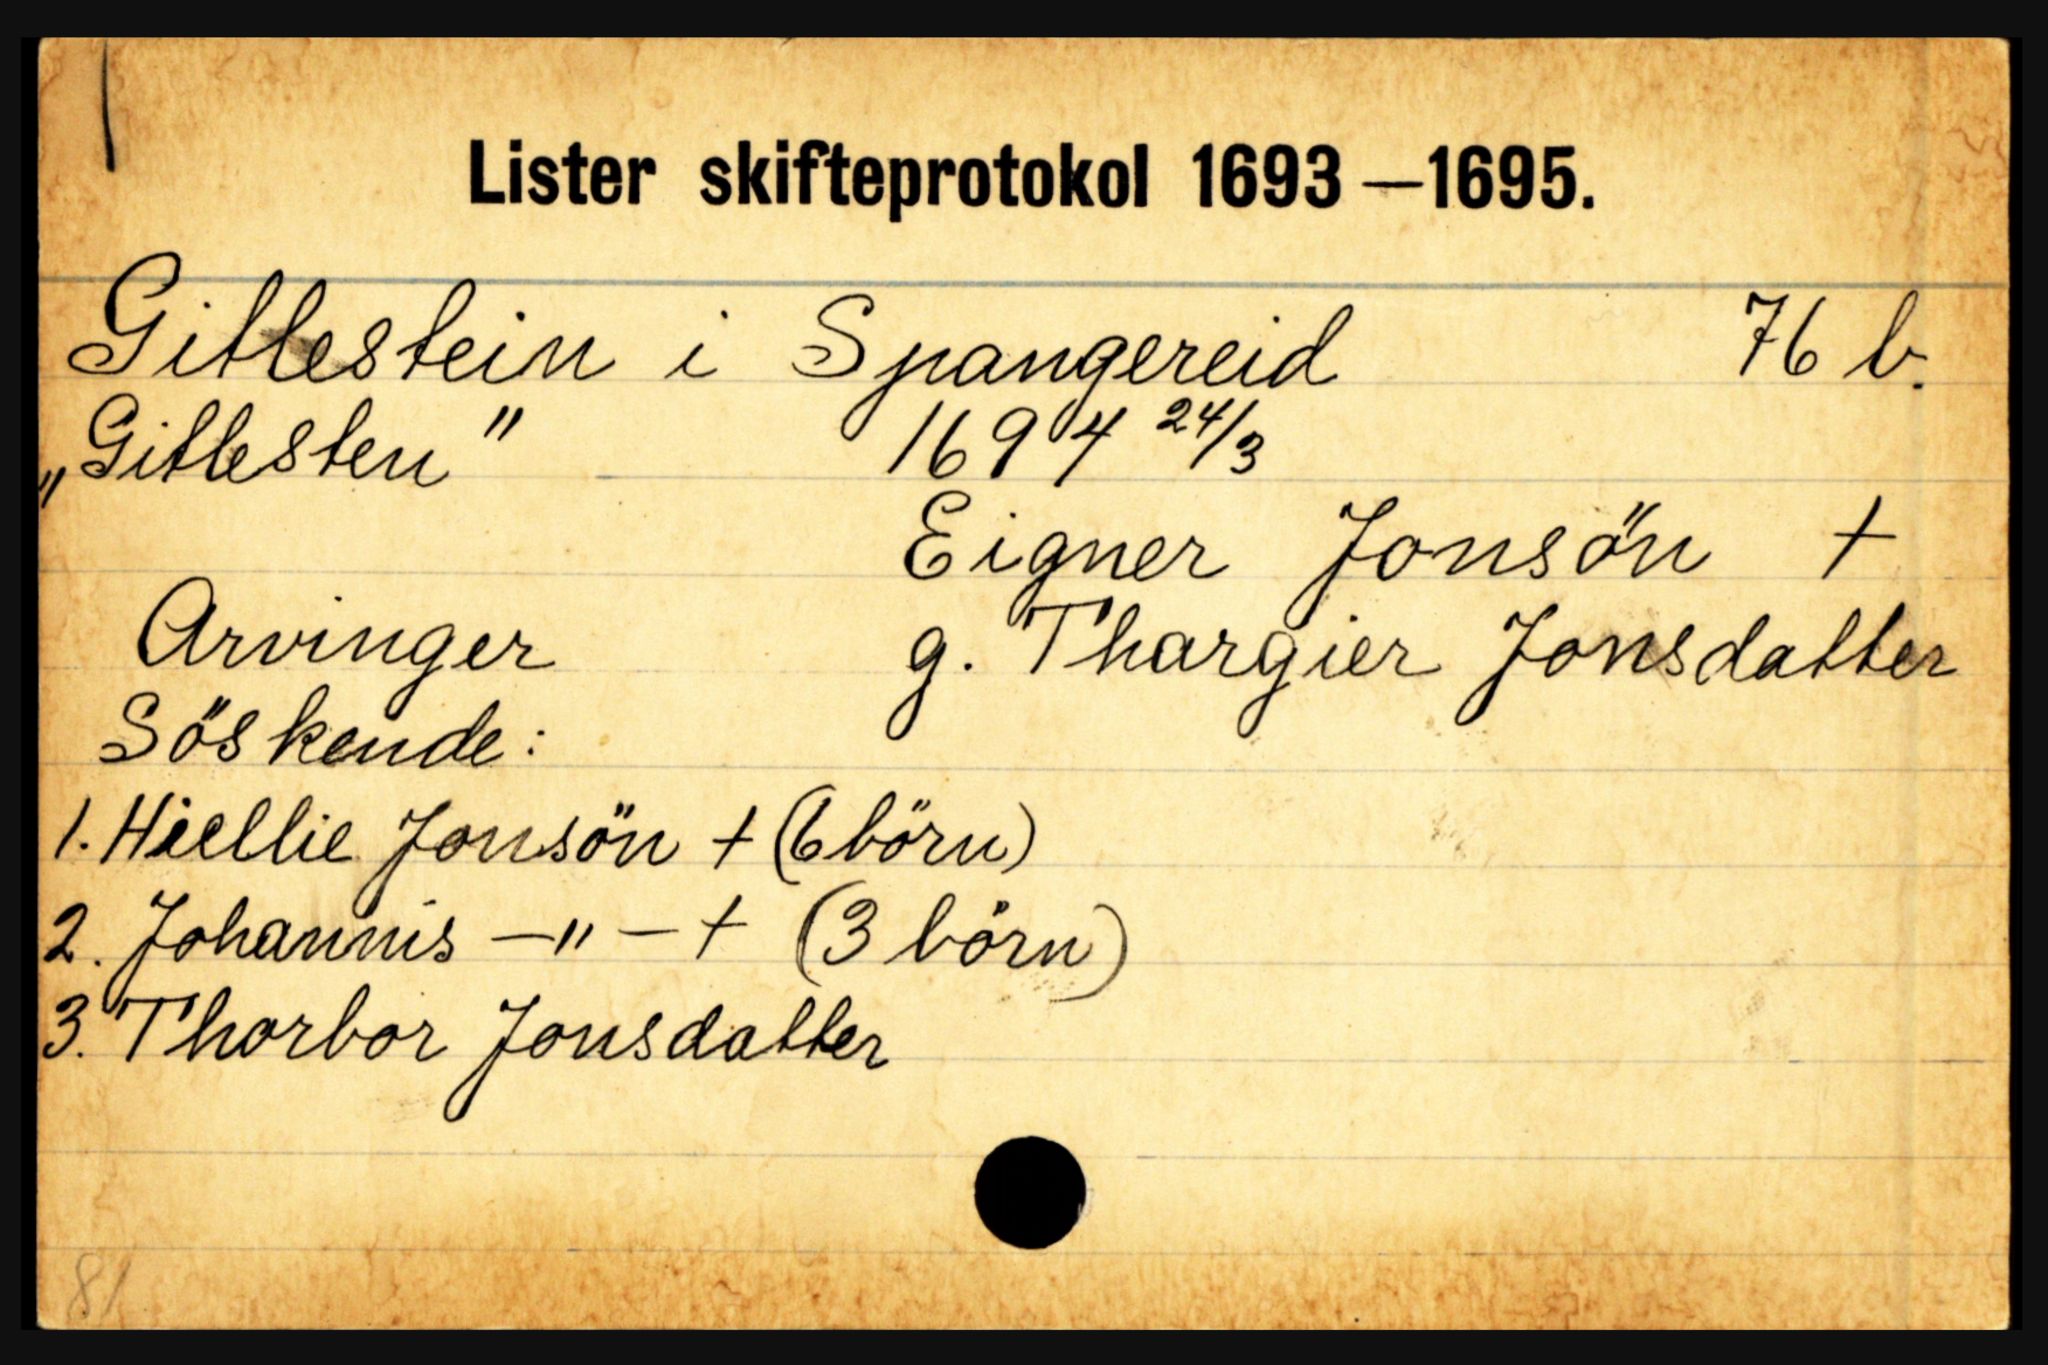 Lister skifteprotokol 1693 — 1695.
Gitlestein i Spangereid 76 b.
„Gitlesten" 1694 24/3
Eigner Jonsön +
Arvinger g. Thargier Jonsdatter
Söskende:
1. Hiellie Jonsön + (6 börn)
2. Johannis —"— + (3 börn)
3. Thorbor Jonsdatter
81